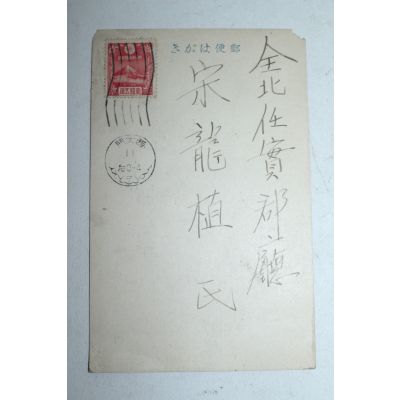 郵便はがき
全北任實郡廳
宋龍植氏